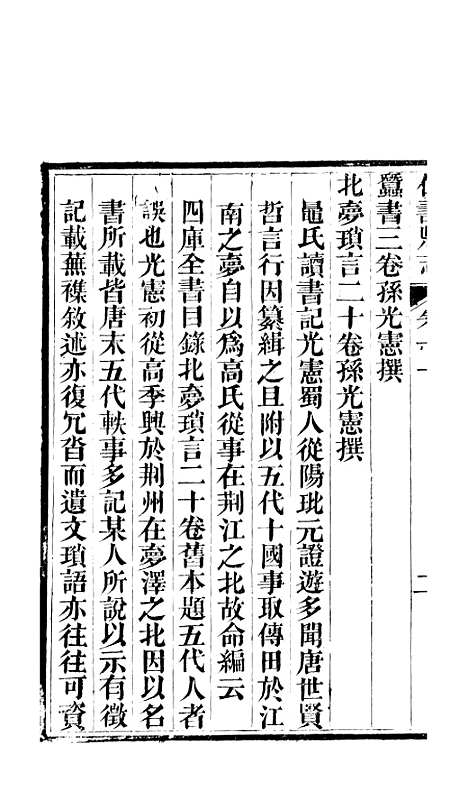 蠶書三卷孫光憲撰
北夢瑣言二十卷孫光憲撰
鼂氏讀書記光憲蜀人從陽玭元證遊多聞唐世賢
哲言行因纂緝之且附以五代十國事取傳田於江
南之夢自以爲高氏從事在荆江之北故命編云
四庫全書目錄北夢瑣言二十卷舊本題五代人者
誤也光憲初從高季興於荆州在夢澤之北因以名
書所載皆唐末五代軼事多記某人所說以示有徵
記載蕪襍敘述亦復冗沓而遺文瑣語亦往往可資